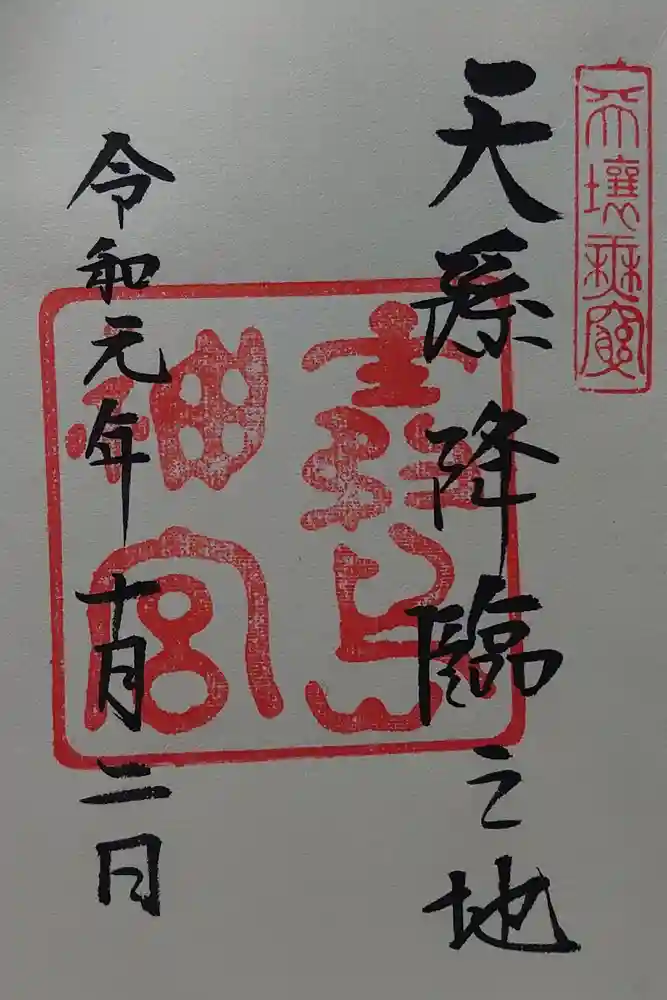 天壤無窮
天孫降臨之地
霧島
神宮
令和元年十月二日